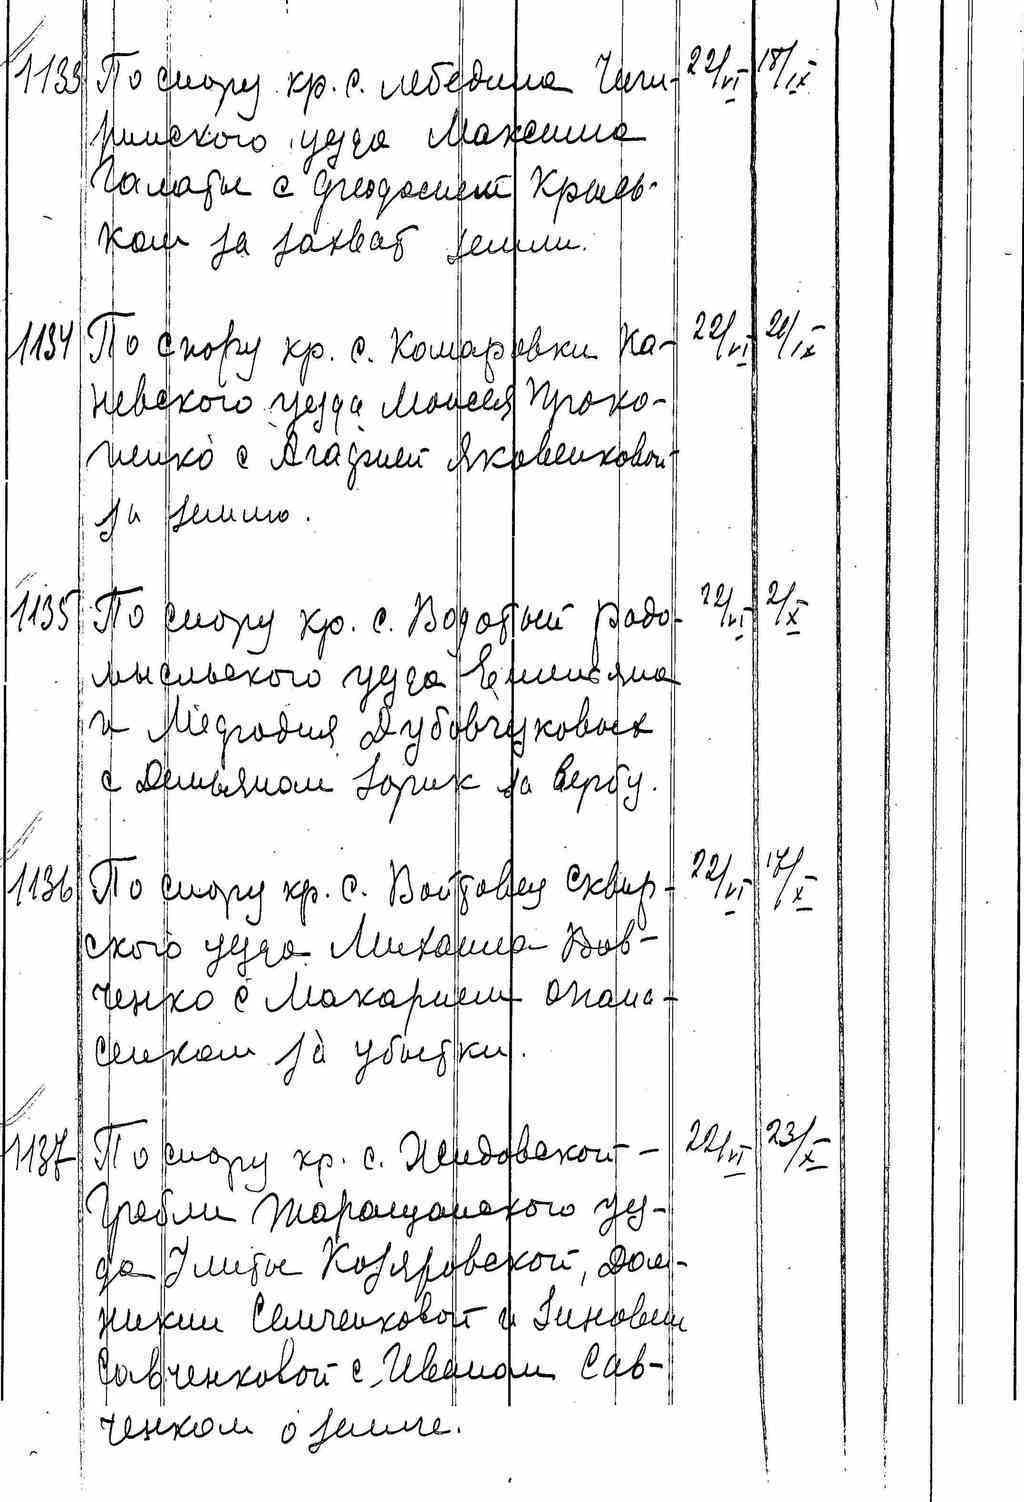 1133 По спору кр. с. Лебедина Чиги- 22/VI 18/IX
ринского уезда Максима
Галаты с Феодосием Крысь-
ком за захват земли.
1134 По спору кр. с. Комаровки Ка- 22/VI 20/IX
невского уезда Моисея Проко-
пенко с Агафией Яковенковой
за землю.
1135 По спору кр. с. Водотый Радо- 22/VI 2/X
мысльского уезда Емельяна
и Мефодия Дубовчуковых
с Демьяном Зорик за вербу.
1136 По спору кр. с. Войтовец Сквир- 22/VI 17/X
ского уезда Михаила Вов-
ченко с Макарием Опана-
сенком за убытки.
1137 По спору кр. с. Жидовской- 22/VI 23/X
Гребли Таращанского уез-
да Улиты Козяровской, Дом-
никии Семченковой и Зиновии
Савченковой с Иваном Сав-
ченком о земле.